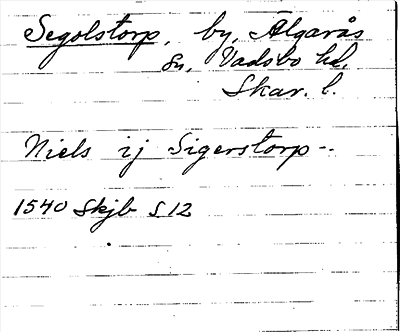 Segolstorp, by, Älgarås
sn, Vadsbo hd,
Skar. l.
Niels ij Sigerstorp -
1540 Skjb S 12